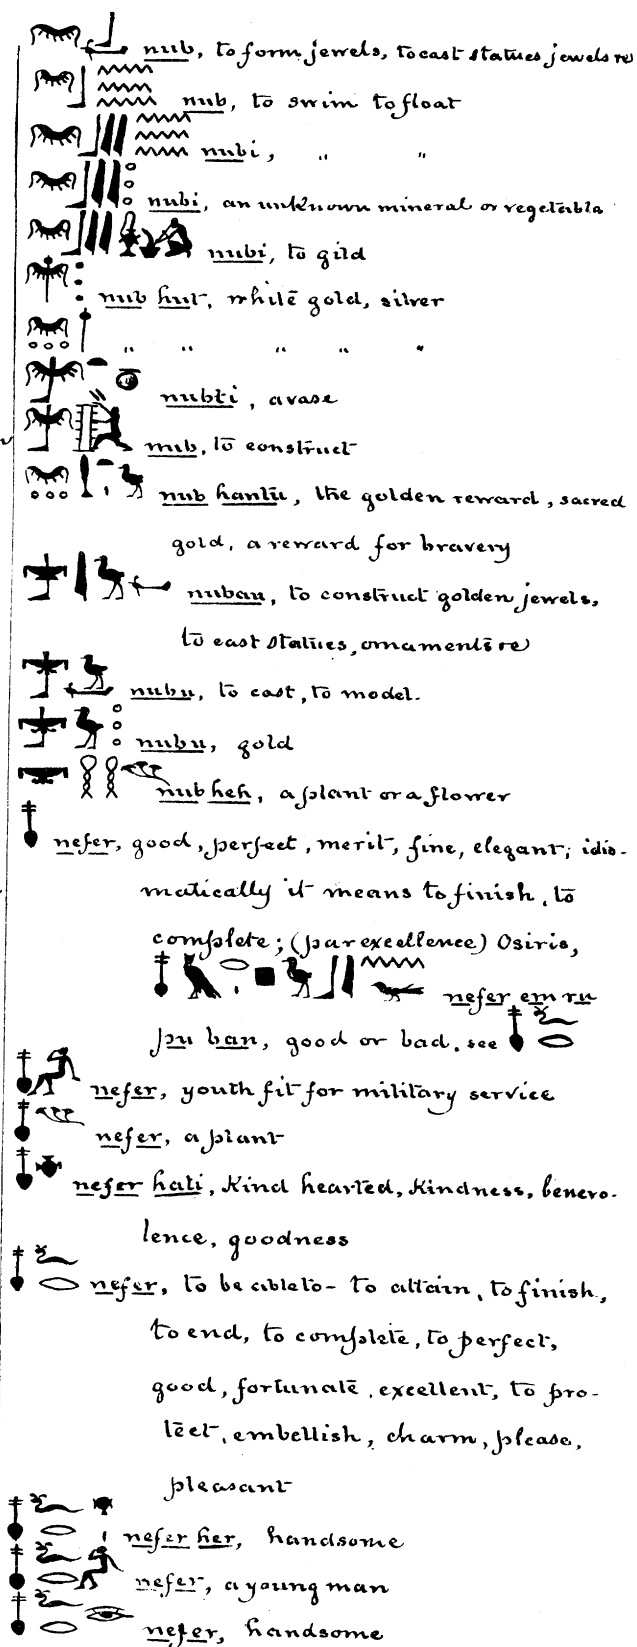 nub, to form jewels, to cast statues jewels re
nub, to swim to float
nubi, " "
nubi, an unknown mineral or vegetable
nubi, to gild
nub hut, white gold, silver
" " " " "
nubti, a vase
nub, to construct
nub hantu, the golden reward, sacred
gold, a reward for bravery
nuban, to construct golden jewels,
to cast statues, ornaments re
nubu, to cast, to model.
nubu, gold
nub heh, a plant or a flower
nefer, good, perfect, merit, fine, elegant; idio-
matically it means to finish, to
complete; (par excellence) Osiris,
nefer em ru
pu ban, good or bad, see
nefer, youth fit for military service
nefer, a plant
nefer hati, kind hearted, kindness, benevo-
lence, goodness
nefer, to be able to - to attain, to finish,
to end, to complete, to perfect,
good, fortunate, excellent, to pro-
tect, embellish, charm, please,
pleasant
nefer her, handsome
nefer, a young man
nefer, handsome